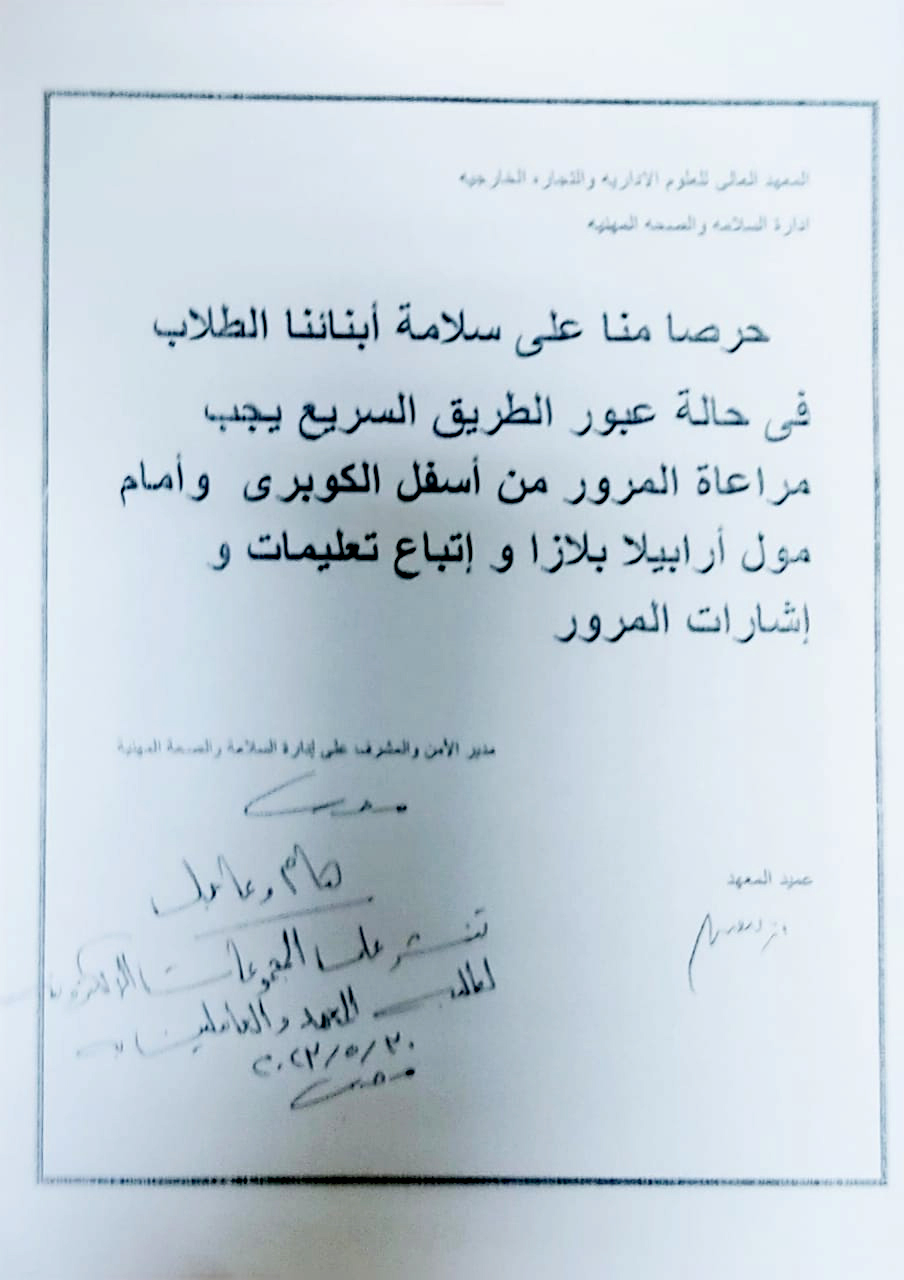 المعهد العالى للعلوم الاداريه والتجاره الخارجيه
ادارة السلامه والصحه المهنيه
حرصا منا على سلامة أبنائنا الطلاب
فى حالة عبور الطريق السريع يجب
مراعاة المرور من أسفل الكوبرى وأمام
مول أرابيلا بلازا و إتباع تعليمات و
إشارات المرور
مدير الأمن والمشرف على إدارة السلامة والصحة المهنية
هام وعاجل
عميد المعهد
تنشر على المجموعات الإلكترونية
لطلاب المعهد والعاملين به
٢٠٢٣/٥/٣٠